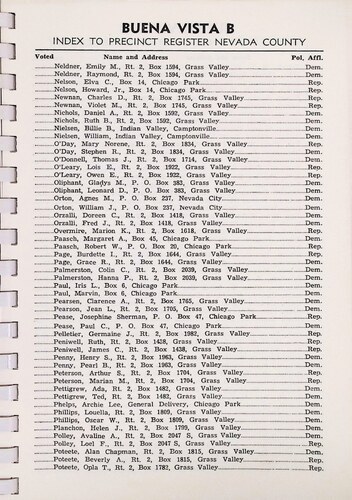 BUENA VISTA B
INDEX TO PRECINCT REGISTER NEVADA COUNTY
Voted Name and Address Pol. Affl.
Neldner, Emily M., Rt. 2, Box 1594, Grass Valley Dem.
Neldner, Raymond, Rt. 2, Box 1594, Grass Valley Dem.
Nelson, Elva C., Box 14, Chicago Park Rep.
Nelson, Howard, Jr., Box 14, Chicago Park Rep.
Newnan, Charles D., Rt. 2, Box 1745, Grass Valley Rep.
Newnan, Violet M., Rt. 2, Box 1745, Grass Valley Rep.
Nichols, Daniel A., Rt. 2, Box 1592, Grass Valley Dem.
Nichols, Ruth B., Rt. 2, Box 1592, Grass Valley Dem.
Nielsen, Billie B., Indian Valley, Camptonville Dem.
Nielsen, William, Indian Valley, Camptonville Dem.
O'Day, Mary Norene, Rt. 2, Box 1834, Grass Valley Rep.
O'Day, Stephen R., Rt. 2, Box 1834, Grass Valley Dem.
O'Donnell, Thomas J., Rt. 2, Box 1714, Grass Valley Dem.
O'Leary, Lois E., Rt. 2, Box 1922, Grass Valley Rep.
O'Leary, Owen E., Rt. 2, Box 1922, Grass Valley Rep.
Oliphant, Gladys M., P. O. Box 383, Grass Valley Dem.
Oliphant, Leonard D., P. O. Box 383, Grass Valley Dem.
Orton, Agnes M., P. O. Box 237, Nevada City Dem.
Orton, William J., P. O. Box 237, Nevada City Dem.
Orzalli, Doreen C., Rt. 2, Box 1418, Grass Valley Dem.
Orzalli, Fred J., Rt. 2, Box 1418, Grass Valley Dem.
Overmire, Marion K., Rt. 2, Box 1618, Grass Valley Rep.
Paasch, Margaret A., Box 45, Chicago Park Dem.
Paasch, Robert W., P. O. Box 20, Chicago Park Rep.
Page, Burdette I., Rt. 2, Box 1644, Grass Valley Rep.
Page, Grace R., Rt. 2, Box 1644, Grass Valley Rep.
Palmerston, Colin C., Rt. 2, Box 2039, Grass Valley Dem.
Palmerston, Hanna P., Rt. 2, Box 2039, Grass Valley Dem.
Paul, Iris L., Box 6, Chicago Park Dem.
Paul, Marvin, Box 6, Chicago Park Dem.
Pearsen, Clarence A., Rt. 2, Box 1765, Grass Valley Dem.
Pearson, Jean L., Rt. 2, Box 1705, Grass Valley Dem.
Pease, Josephine Sherman, P. O. Box 47, Chicago Park Rep.
Pease, Paul C., P. O. Box 47, Chicago Park Dem.
Pelletier, Germaine J., Rt. 2, Box 1982, Grass Valley Rep.
Peniwell, Ruth, Rt. 2, Box 1438, Grass Valley Rep.
Peniwell, James C., Rt. 2, Box 1438, Grass Valley Rep.
Penny, Henry S., Rt. 2, Box 1963, Grass Valley Dem.
Penny, Pearl B., Rt. 2, Box 1963, Grass Valley Dem.
Peterson, Arthur S., Rt. 2, Box 1704, Grass Valley Rep.
Peterson, Marian M., Rt. 2, Box 1704, Grass Valley Rep.
Pettigrew, Ada, Rt. 2, Box 1482, Grass Valley Dem.
Pettigrew, Ted, Rt. 2, Box 1482, Grass Valley Dem.
Phelps, Archie Lee, General Delivery, Chicago Park Dem.
Phillips, Louella, Rt. 2, Box 1809, Grass Valley Dem.
Phillips, Oscar W., Rt. 2, Box 1809, Grass Valley Dem.
Planchon, Helen J., Rt. 2, Box 1799, Grass Valley Dem.
Polley, Avaline A., Rt. 2, Box 2047 S, Grass Valley Dem.
Polley, Loel F., Rt. 2, Box 2047 S, Grass Valley Rep.
Poteete, Alan Chapman, Rt. 2, Box 1815, Grass Valley Dem.
Poteete, Beverly A., Rt. 2, Box 1815, Grass Valley Rep.
Poteete, Opla T., Rt. 2, Box 1782, Grass Valley Rep.